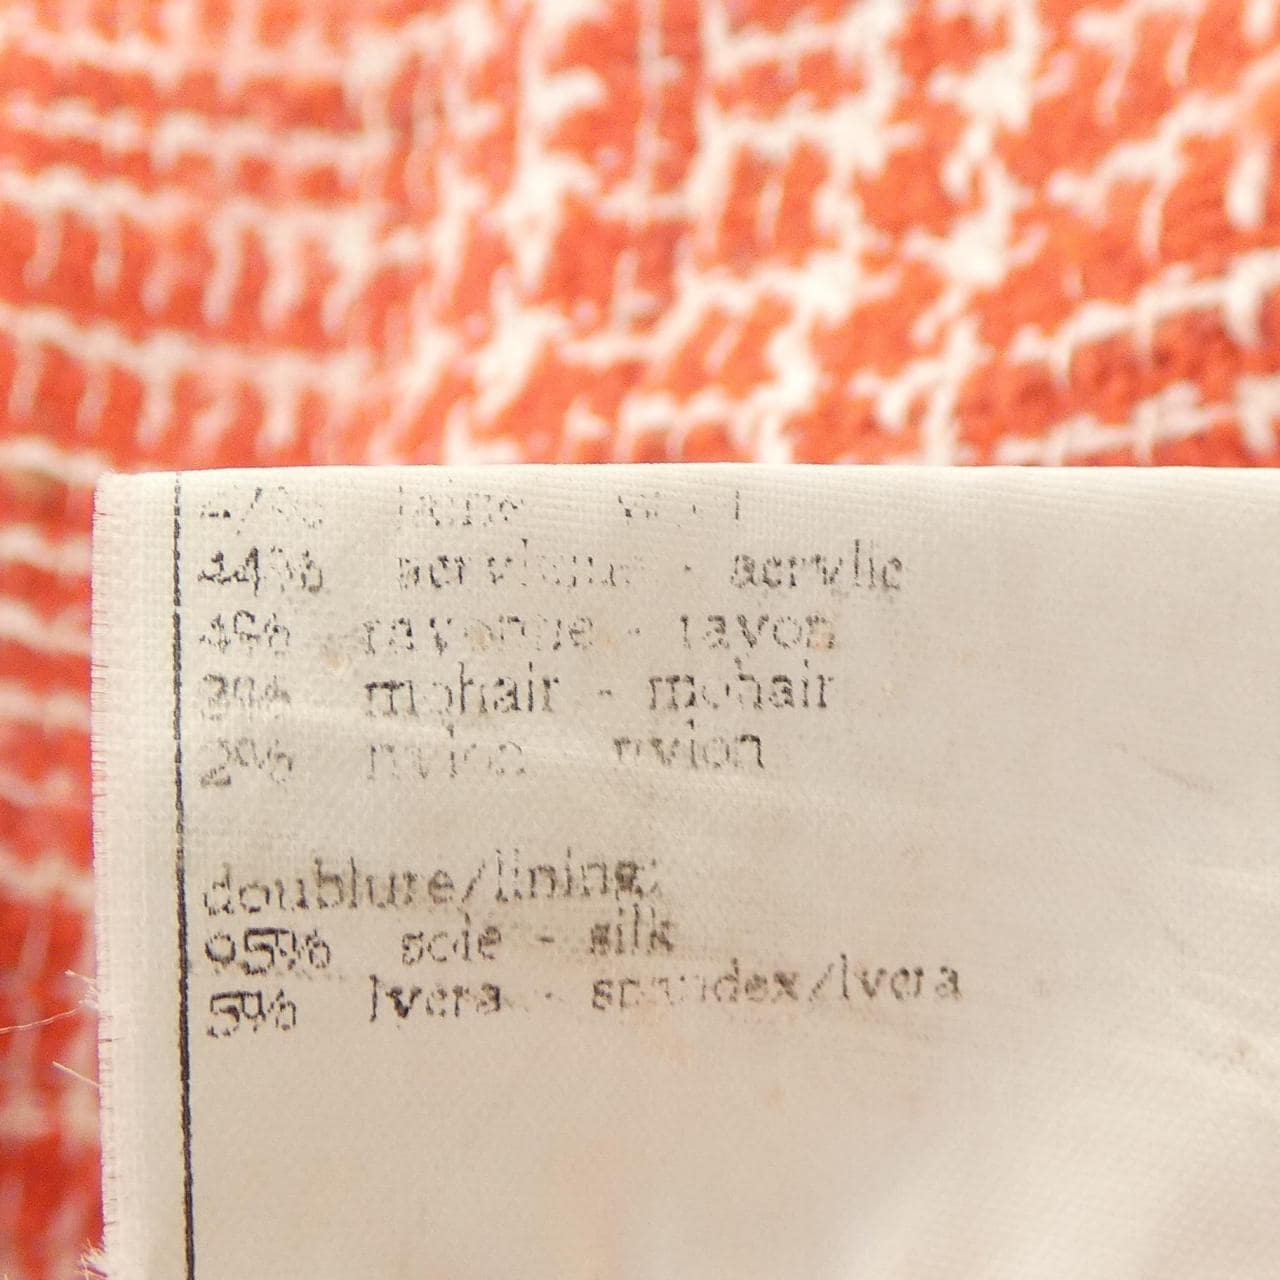 47% laine wool
44% acrylique - acrylic
4% rayonne - rayon
3% mohair - mohair
2% nylon nylon
doublure/lining:
95% soie - silk
5% lycra - spandex/lycra